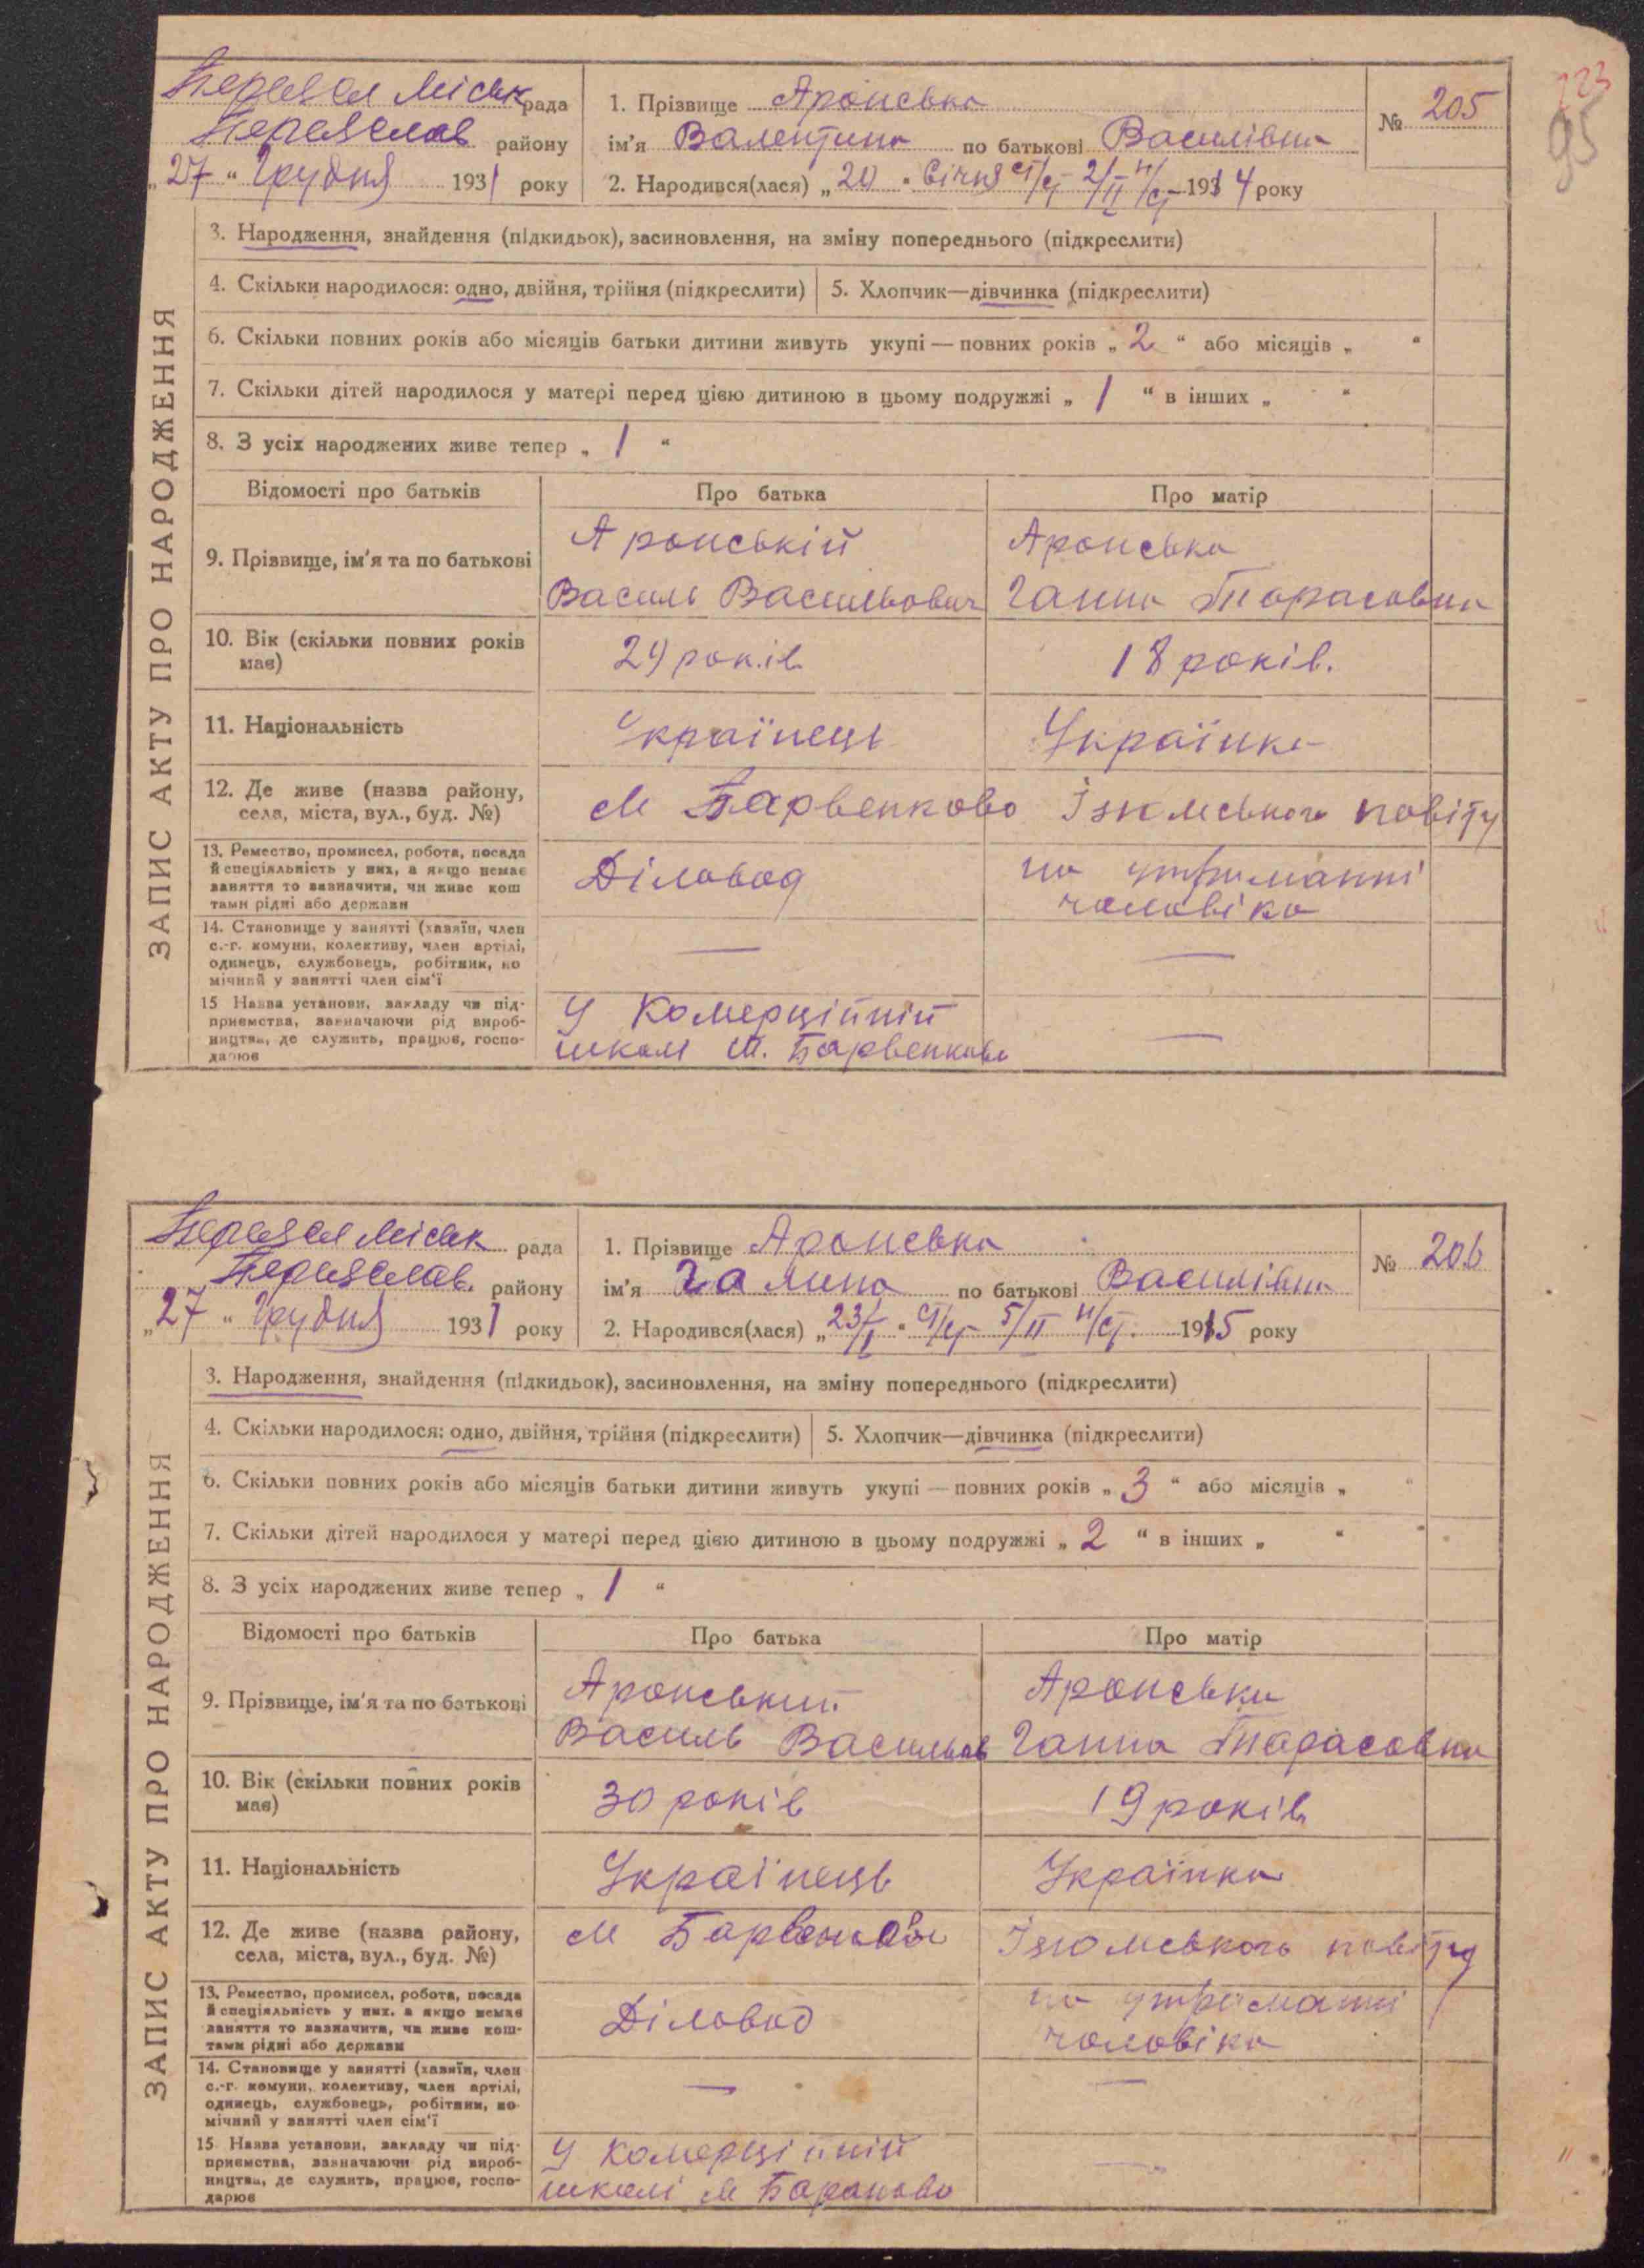 223
95
Переясл Міськ рада
Переяслав району
„27“ Грудня 1931 року
1. Прізвище Аронська
ім'я Валентина по батькові Василівна
2. Народився(лася) „20“ Січня ст/ст 2/II н/ст 1914 року
№ 205
ЗАПИС АКТУ ПРО НАРОДЖЕННЯ
3. Народження, знайдення (підкидьок), засиновлення, на зміну попереднього (підкреслити)
4. Скільки народилося: одно, двійня, трійня (підкреслити) 5. Хлопчик—дівчинка (підкреслити)
6. Скільки повних років або місяців батьки дитини живуть укупі — повних років „2“ або місяців „ “
7. Скільки дітей народилося у матері перед цією дитиною в цьому подружжі „1“ в інших „ “
8. З усіх народжених живе тепер „1“
Відомості про батьків Про батька Про матір
9. Прізвище, ім'я та по батькові
Аронській
Василь Васильович
Аронська
Ганна Тарасовна
10. Вік (скільки повних років
має)
29 років
18 років.
11. Національність Українець Українка
12. Де живе (назва району,
села, міста, вул., буд. №)
м Барвенково Ізюмського повіту
13. Ремество, промисел, робота, посада
й спеціяльність у них, а якщо немає
заняття то зазначити, чи живе кош
тами рідні або держави
Діловод
на утриманні
чоловіка
14. Становище у занятті (хазяїн, член
с.-г. комуни, колективу, член артілі,
одинець, службовець, робітник, по
мічний у занятті член сім'ї
—
—
15 Назва установи, закладу чи під-
приємства, зазначаючи рід вироб-
ництва, де служить, працює, госпо-
дарює
У Комерційній
школі м. Барвенково
—
Переясл Міськ рада
Переяслав. району
„27“ Грудня 1931 року
1. Прізвище Аронська
ім'я Галина по батькові Василівна
2. Народився(лася) „23/I“ ст/ст 5/II н/ст. 1915 року
№ 206
ЗАПИС АКТУ ПРО НАРОДЖЕННЯ
3. Народження, знайдення (підкидьок), засиновлення, на зміну попереднього (підкреслити)
4. Скільки народилося: одно, двійня, трійня (підкреслити) 5. Хлопчик—дівчинка (підкреслити)
6. Скільки повних років або місяців батьки дитини живуть укупі — повних років „3“ або місяців „ “
7. Скільки дітей народилося у матері перед цією дитиною в цьому подружжі „2“ в інших „ “
8. З усіх народжених живе тепер „1“
Відомості про батьків Про батька Про матір
9. Прізвище, ім'я та по батькові
Аронський
Василь Васильов
Аронська
Ганна Тарасовна
10. Вік (скільки повних років
має)
30 років
19 років
11. Національність Українець Українка
12. Де живе (назва району,
села, міста, вул., буд. №)
м Ізюмського повіту
13. Ремество, промисел, робота, посада
й спеціяльність у них. а якщо немає
заняття то зазначити, чи живе кош-
тами рідні або держави
Діловод
на утриманні
чоловіка
14. Становище у занятті (хазяїн, член
с.-г. комуни, колективу, член артілі,
одинець, службовець, робітник, по
мічний у занятті член сім'ї
—
—
15 Назва установи, закладу чи під-
приємства, зазначаючи рід вироб-
ництва, де служить, працює, госпо-
дарює
У комерційній
школі м
—